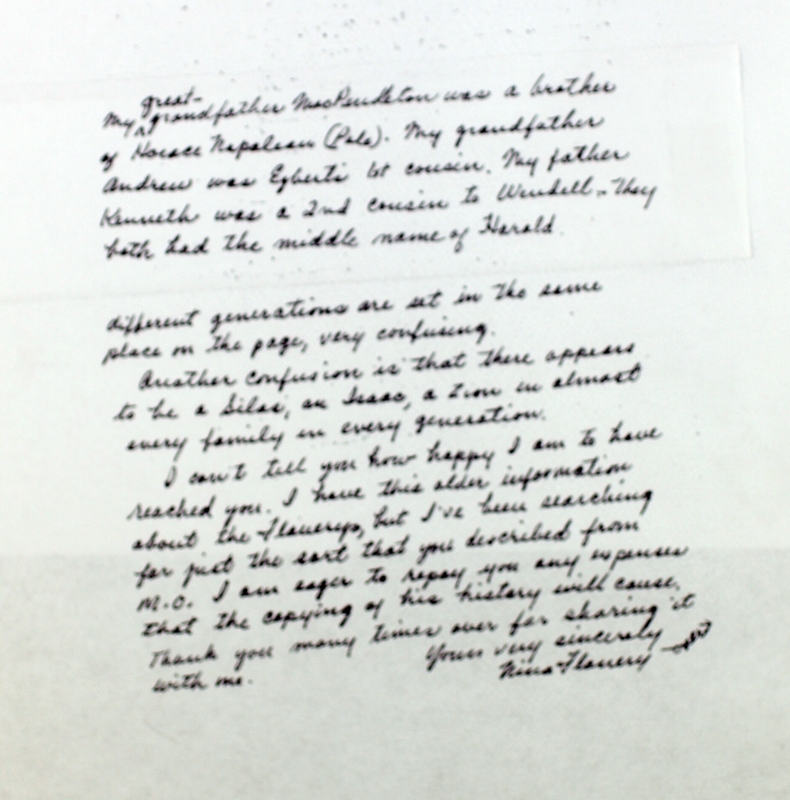 great-
My grandfather MacPendleton was a brother
of Horace Napolean (Pole). My grandfather
Andrew was Egbert's 1st cousin. My father
Kenneth was a 2nd cousin to Wendell. They
both had the middle name of Harold.
different generations are set in the same
place on the page, very confusing.
Another confusion is that there appears
to be a Silas, an Isaac, a Zion in almost
every family in every generation.
I can't tell you how happy I am to have
reached you. I have this older information
about the Flowerys, but I've been searching
for just the sort that you described from
M.O. I am eager to repay you any expenses
that the copying of his history will cause.
Thank you many times over for sharing it
with me.
Yours very sincerely
Nina Flowery